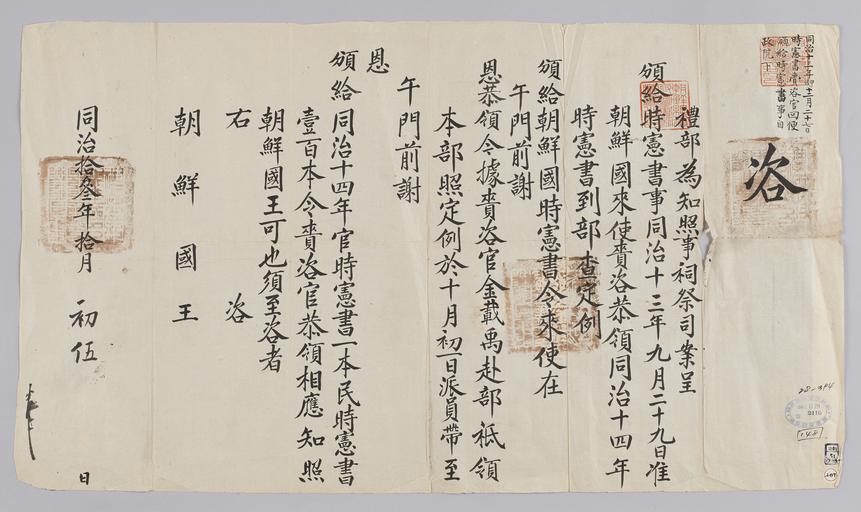 同治十三年十二月二十七日
時憲書賫咨官回便
頒給時憲書事自
政院下
咨
禮部為知照事祠祭司案呈
頒給時憲書事同治十三年九月二十九日准
朝鮮國來使賫咨恭領同治十四年
時憲書到部查定例
頒給朝鮮國時憲書令來使在
午門前謝
恩恭領今據賫咨官金載禹赴部祗領
本部照定例於十月初一日派員帶至
午門前謝
恩
頒給同治十四年官時憲書一本民時憲書
壹百本令賫咨官恭領相應知照
朝鮮國王可也須至咨者
右咨
朝鮮國王
同治拾叁年拾月初伍日
28-394
148